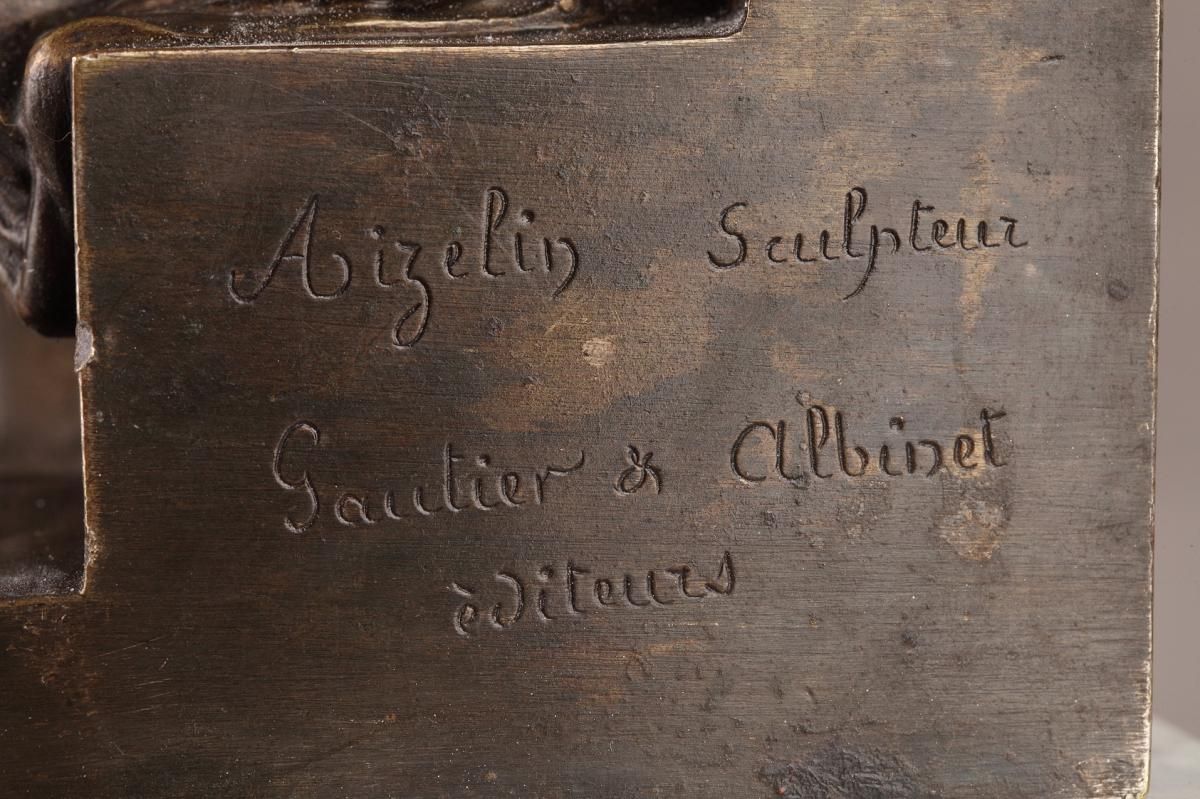 Aizelin Sculpteur
Gautier & Albinet
èditeurs